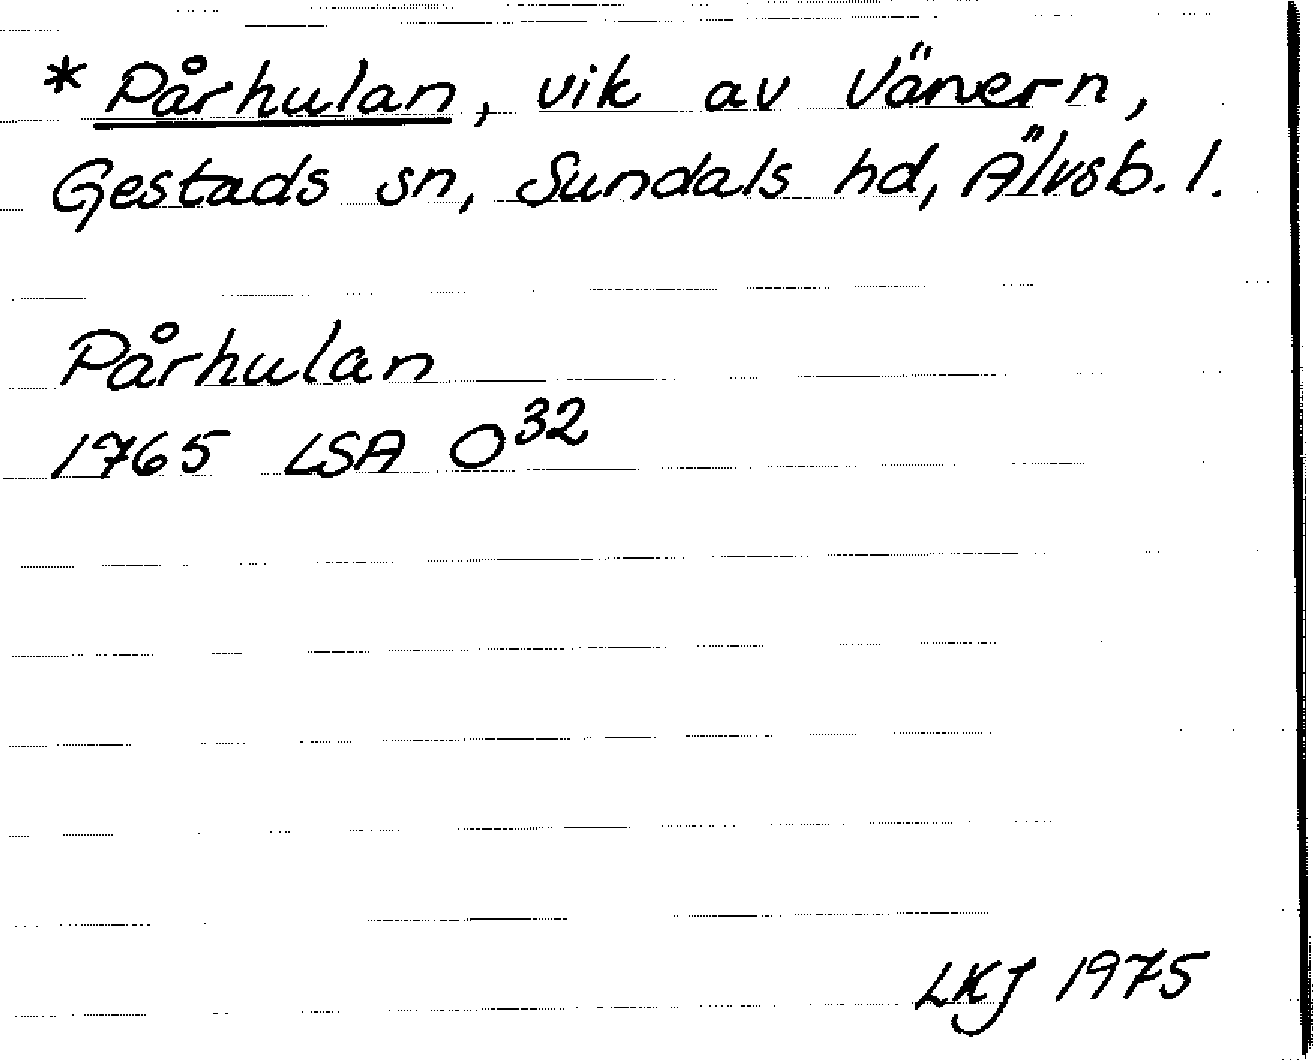 * Pårhulan, vik av Vänern,
Gestads sn, Sundals hd, Älvsb. l.
Pårhulan
1765 LSA O³²
LKJ 1975